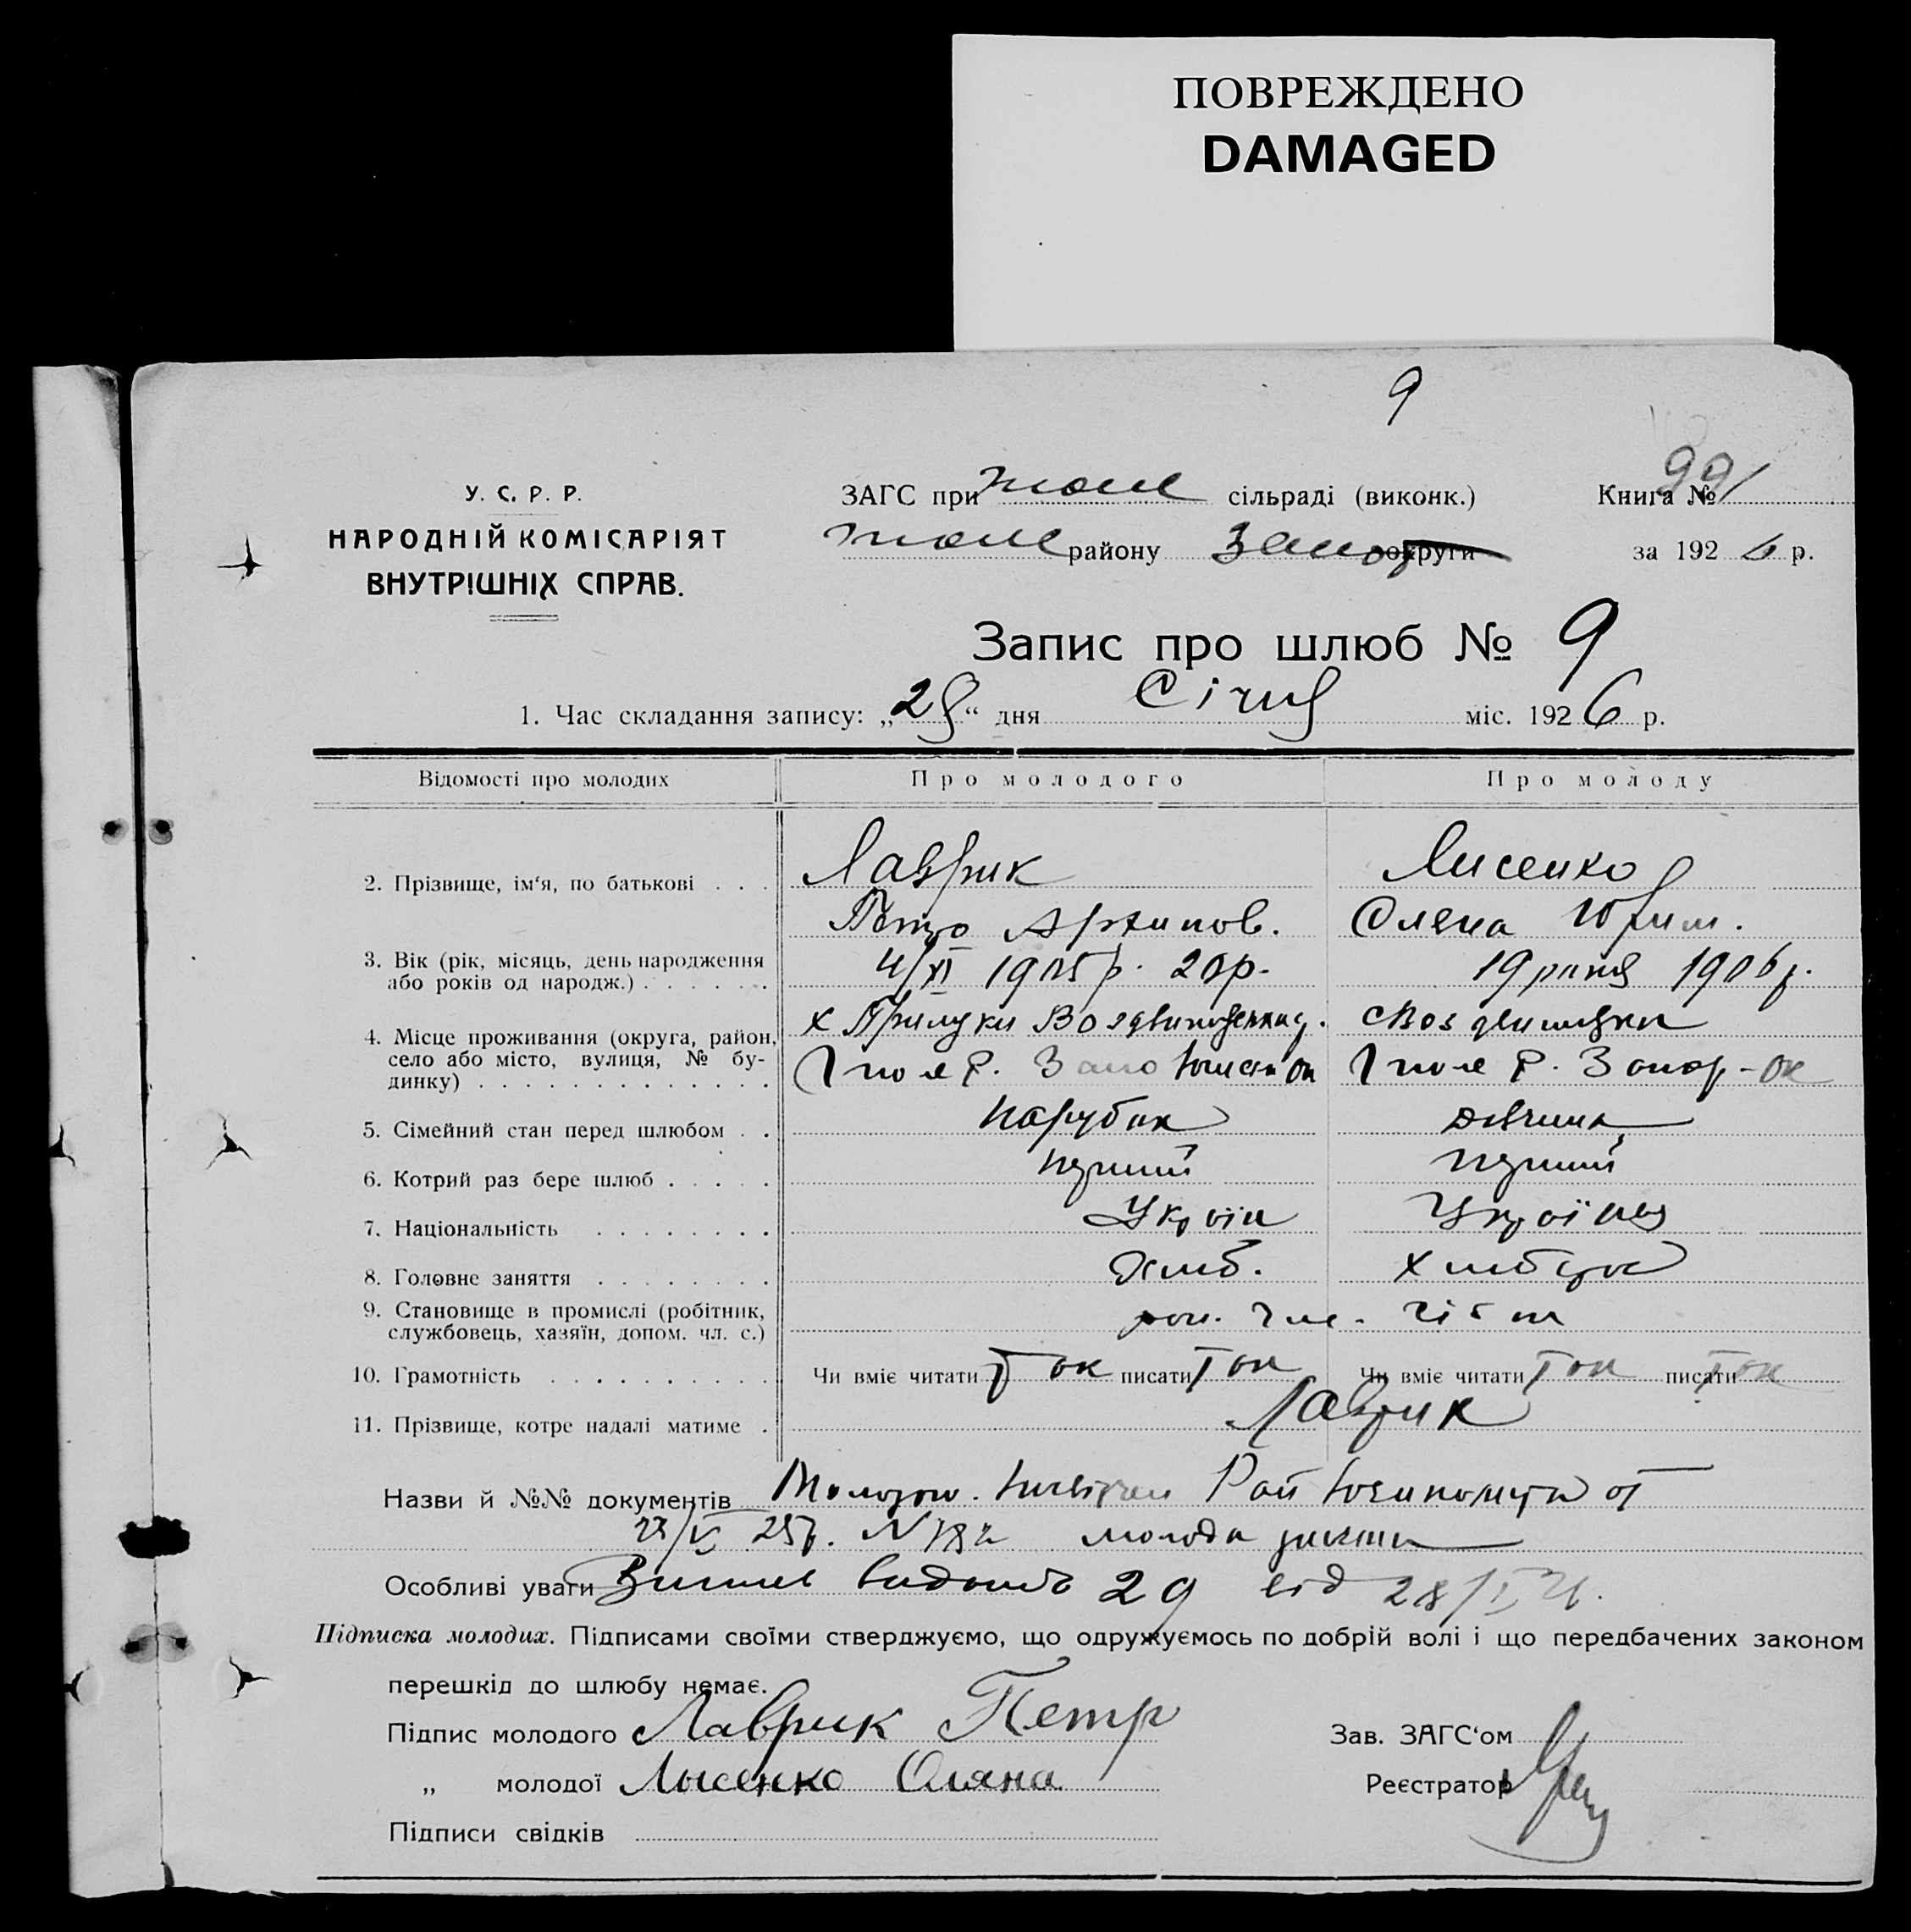 ПОВРЕЖДЕНО
DAMAGED
9
У. С. Р. Р.
НАРОДНІЙ КОМІСАРІЯТ
ВНУТРІШНІХ СПРАВ.
ЗАГС при сільраді (виконк.) Книга № 991
району Запор округи за 1926 р.
Запис про шлюб № 9
1. Час складання запису: „28“ дня Січня міс. 1926 р.
Відомості про молодих Про молодого Про молоду
2. Прізвище, ім‘я, по батькові . . . Лаврик Лисенко
Петро Архипов. Олена
3. Вік (рік, місяць, день народження або років од народж.) . . . . . . 4/XI 1905 р. 20 р. 19 років 1906 р.
4. Місце проживання (округа, район, село або місто, вулиця, № будинку) . . . . . . . . . . . . . х Прилуки
5. Сімейний стан перед шлюбом . . Парубок дівчина
6. Котрий раз бере шлюб . . . . . перший перший
7. Національність . . . . . . . . Україн Українка
8. Головне заняття . . . . . . . . Хліб. Хлібороб
9. Становище в промислі (робітник, службовець, хазяїн, допом. чл. с.)
10. Грамотність . . . . . . . . . . Чи вміє читати так писати так Чи вміє читати так писати так
11. Прізвище, котре надалі матиме . Лаврик
Назви й №№ документів Рай от
25 р. N 182 молода
Особливі уваги 29 від 28/I 26.
Підписка молодих. Підписами своїми стверджуємо, що одружуємось по добрій волі і що передбачених законом
перешкід до шлюбу немає.
Підпис молодого Лаврик Петр Зав. ЗАГС‘ом
„ молодої Лысенко Оляна Реєстратор
Підписи свідків